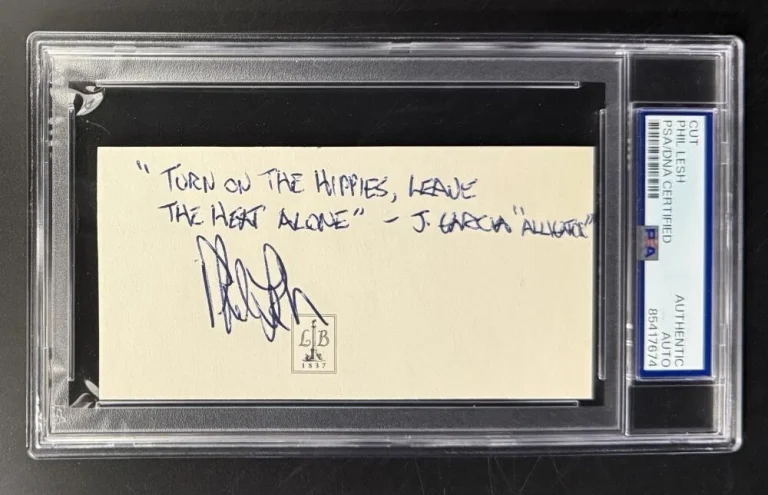 "TURN ON THE HIPPIES, LEAVE
THE HEAT ALONE" - J. GARCIA "ALLIGATOR"
Phil Lesh
L B
1837
CUT
PHIL LESH
PSA/DNA CERTIFIED
PSA
AUTHENTIC
AUTO
85417674